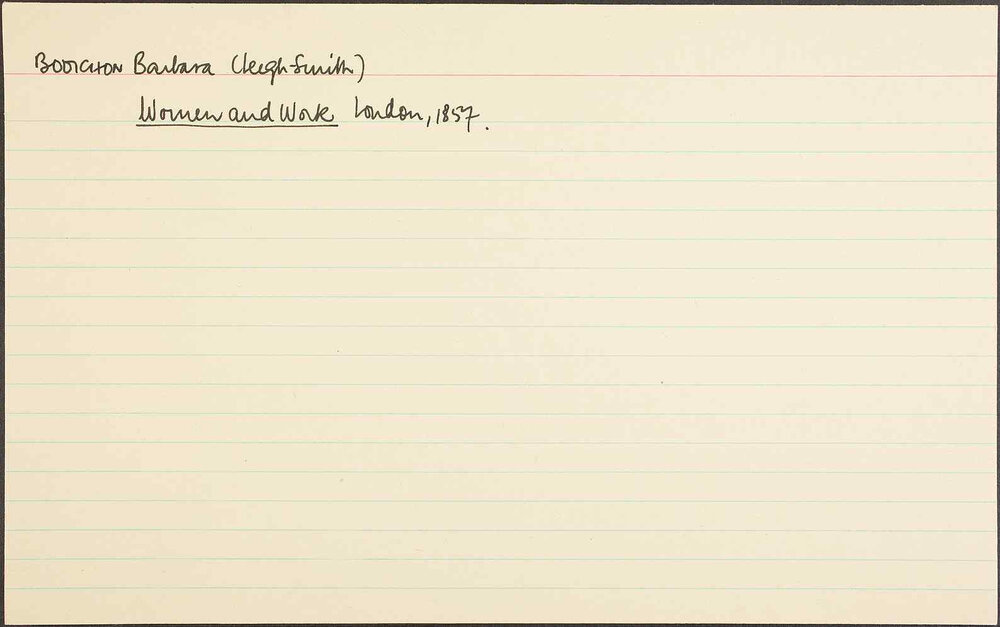 BODICHON Barbara (Leigh-Smith)
Women and Work London, 1857.